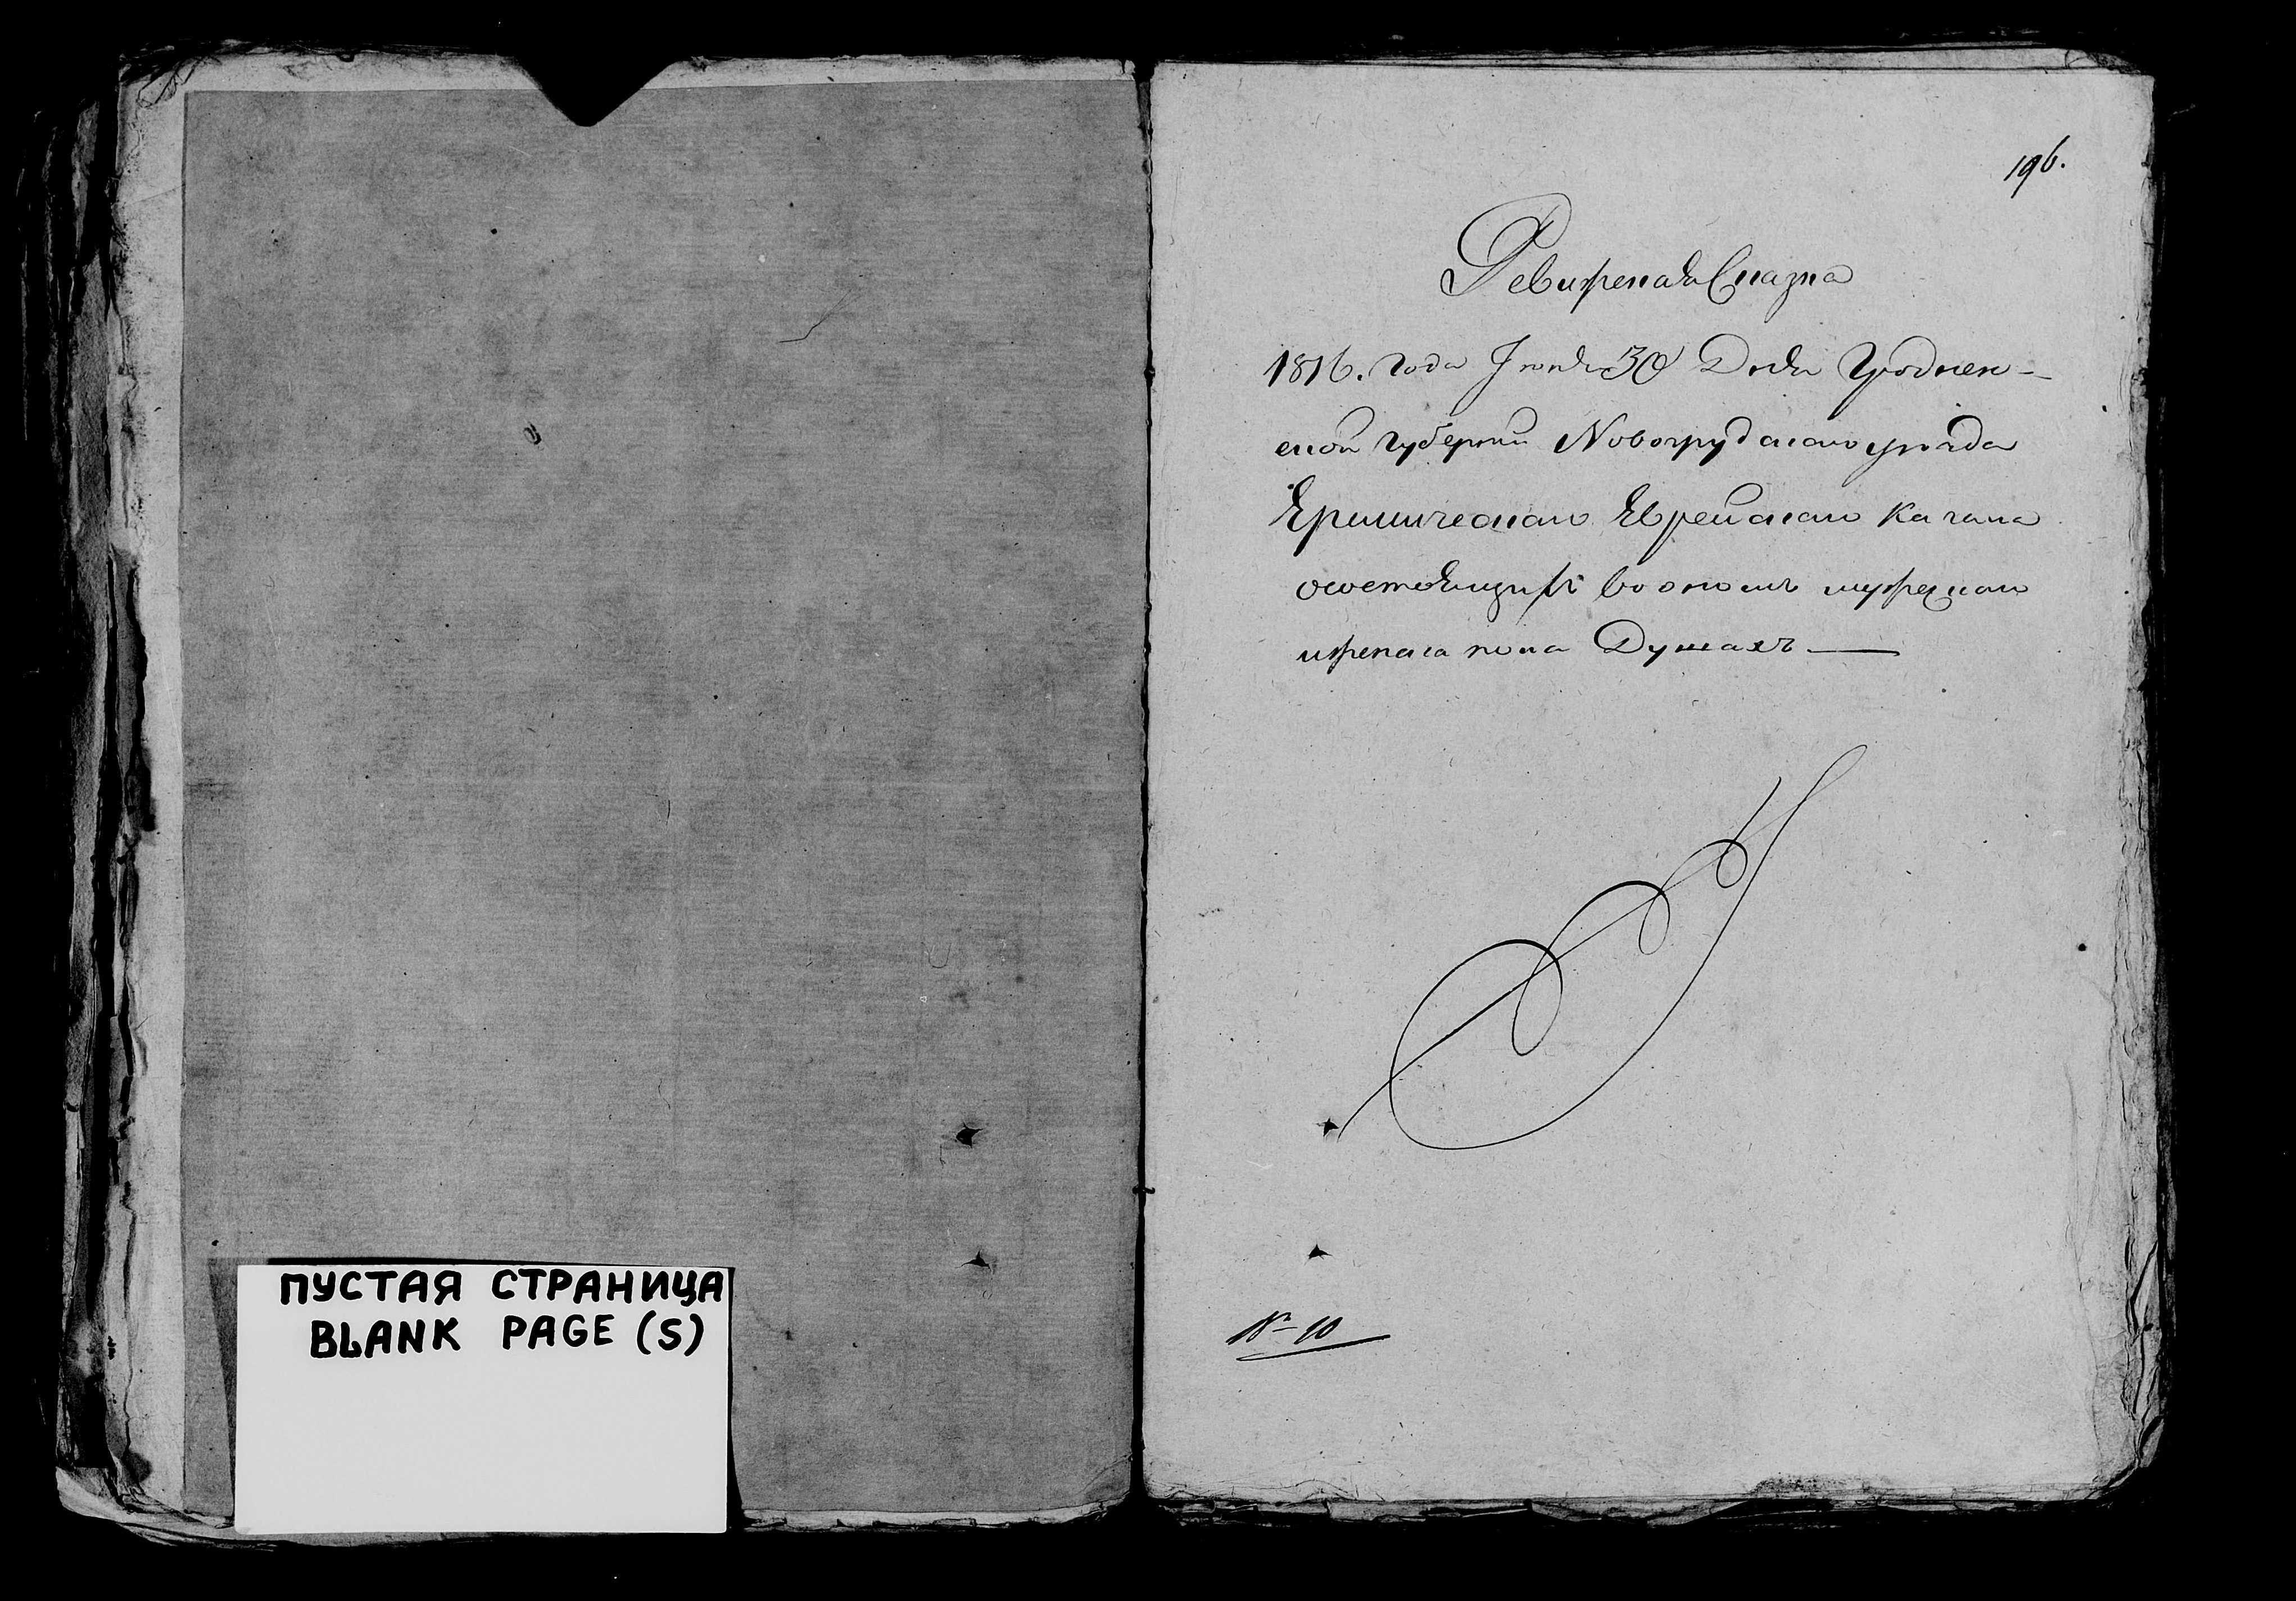 ПУСТАЯ СТРАНИЦА
BLANK PAGE (S)
196.
Ревизская Сказка
1816. года Июня 30 Дня Гроднен-
ской губернии Новогрудскаго уезда
Еврейскаго Кагала
о состоящихъ во ономъ мужескаго
и женска пола Душахъ
№ 10